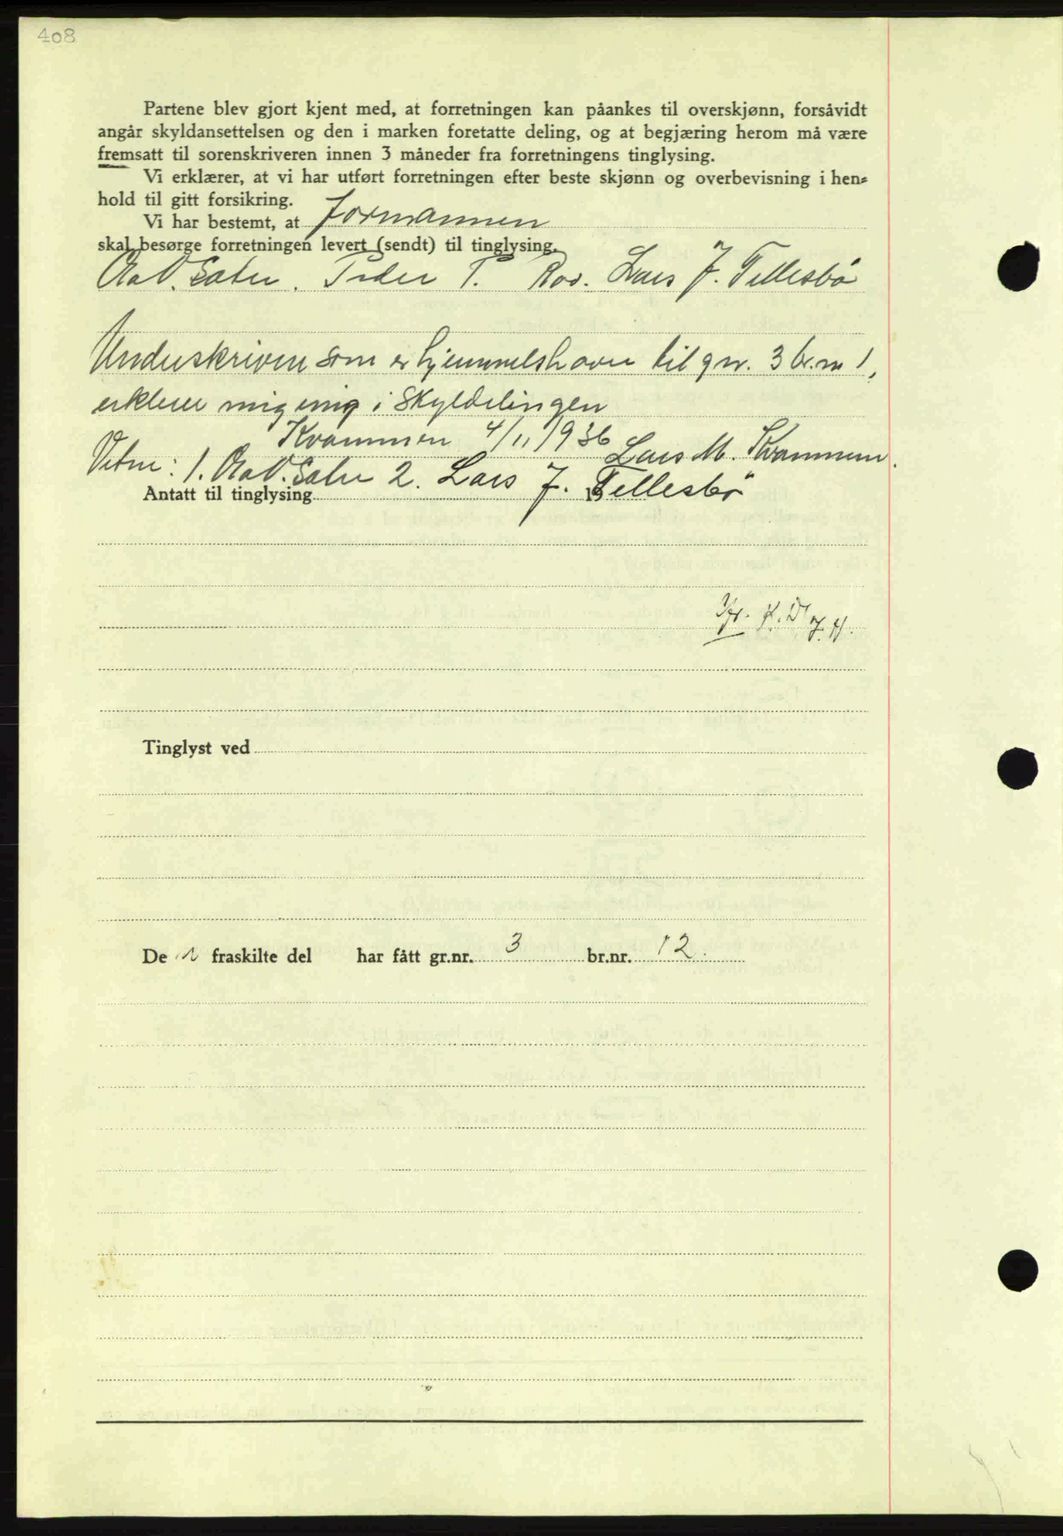 408
Partene blev gjort kjent med, at forretningen kan påankes til overskjønn, forsåvidt
angår skyldansettelsen og den i marken foretatte deling, og at begjæring herom må være
fremsatt til sorenskriveren innen 3 måneder fra forretningens tinglysing.
Vi erklærer, at vi har utført forretningen efter beste skjønn og overbevisning i hen-
hold til gitt forsikring.
Vi har bestemt, at formannen
skal besørge forretningen levert (sendt) til tinglysing.
Peder T. Lars J. Tellesbø
Underskriven som er hjemmelshaver til gnr. 3 br.nr 1,
erklerer mig enig i Skyldelingen
Kvammen 4/11 1936 Lars M. Kvammen.
Vitne: 1. 2. Lars J. Tellesbø
Antatt til tinglysing 19
Tinglyst ved
De n fraskilte del har fått gr.nr. 3 br.nr. 12.